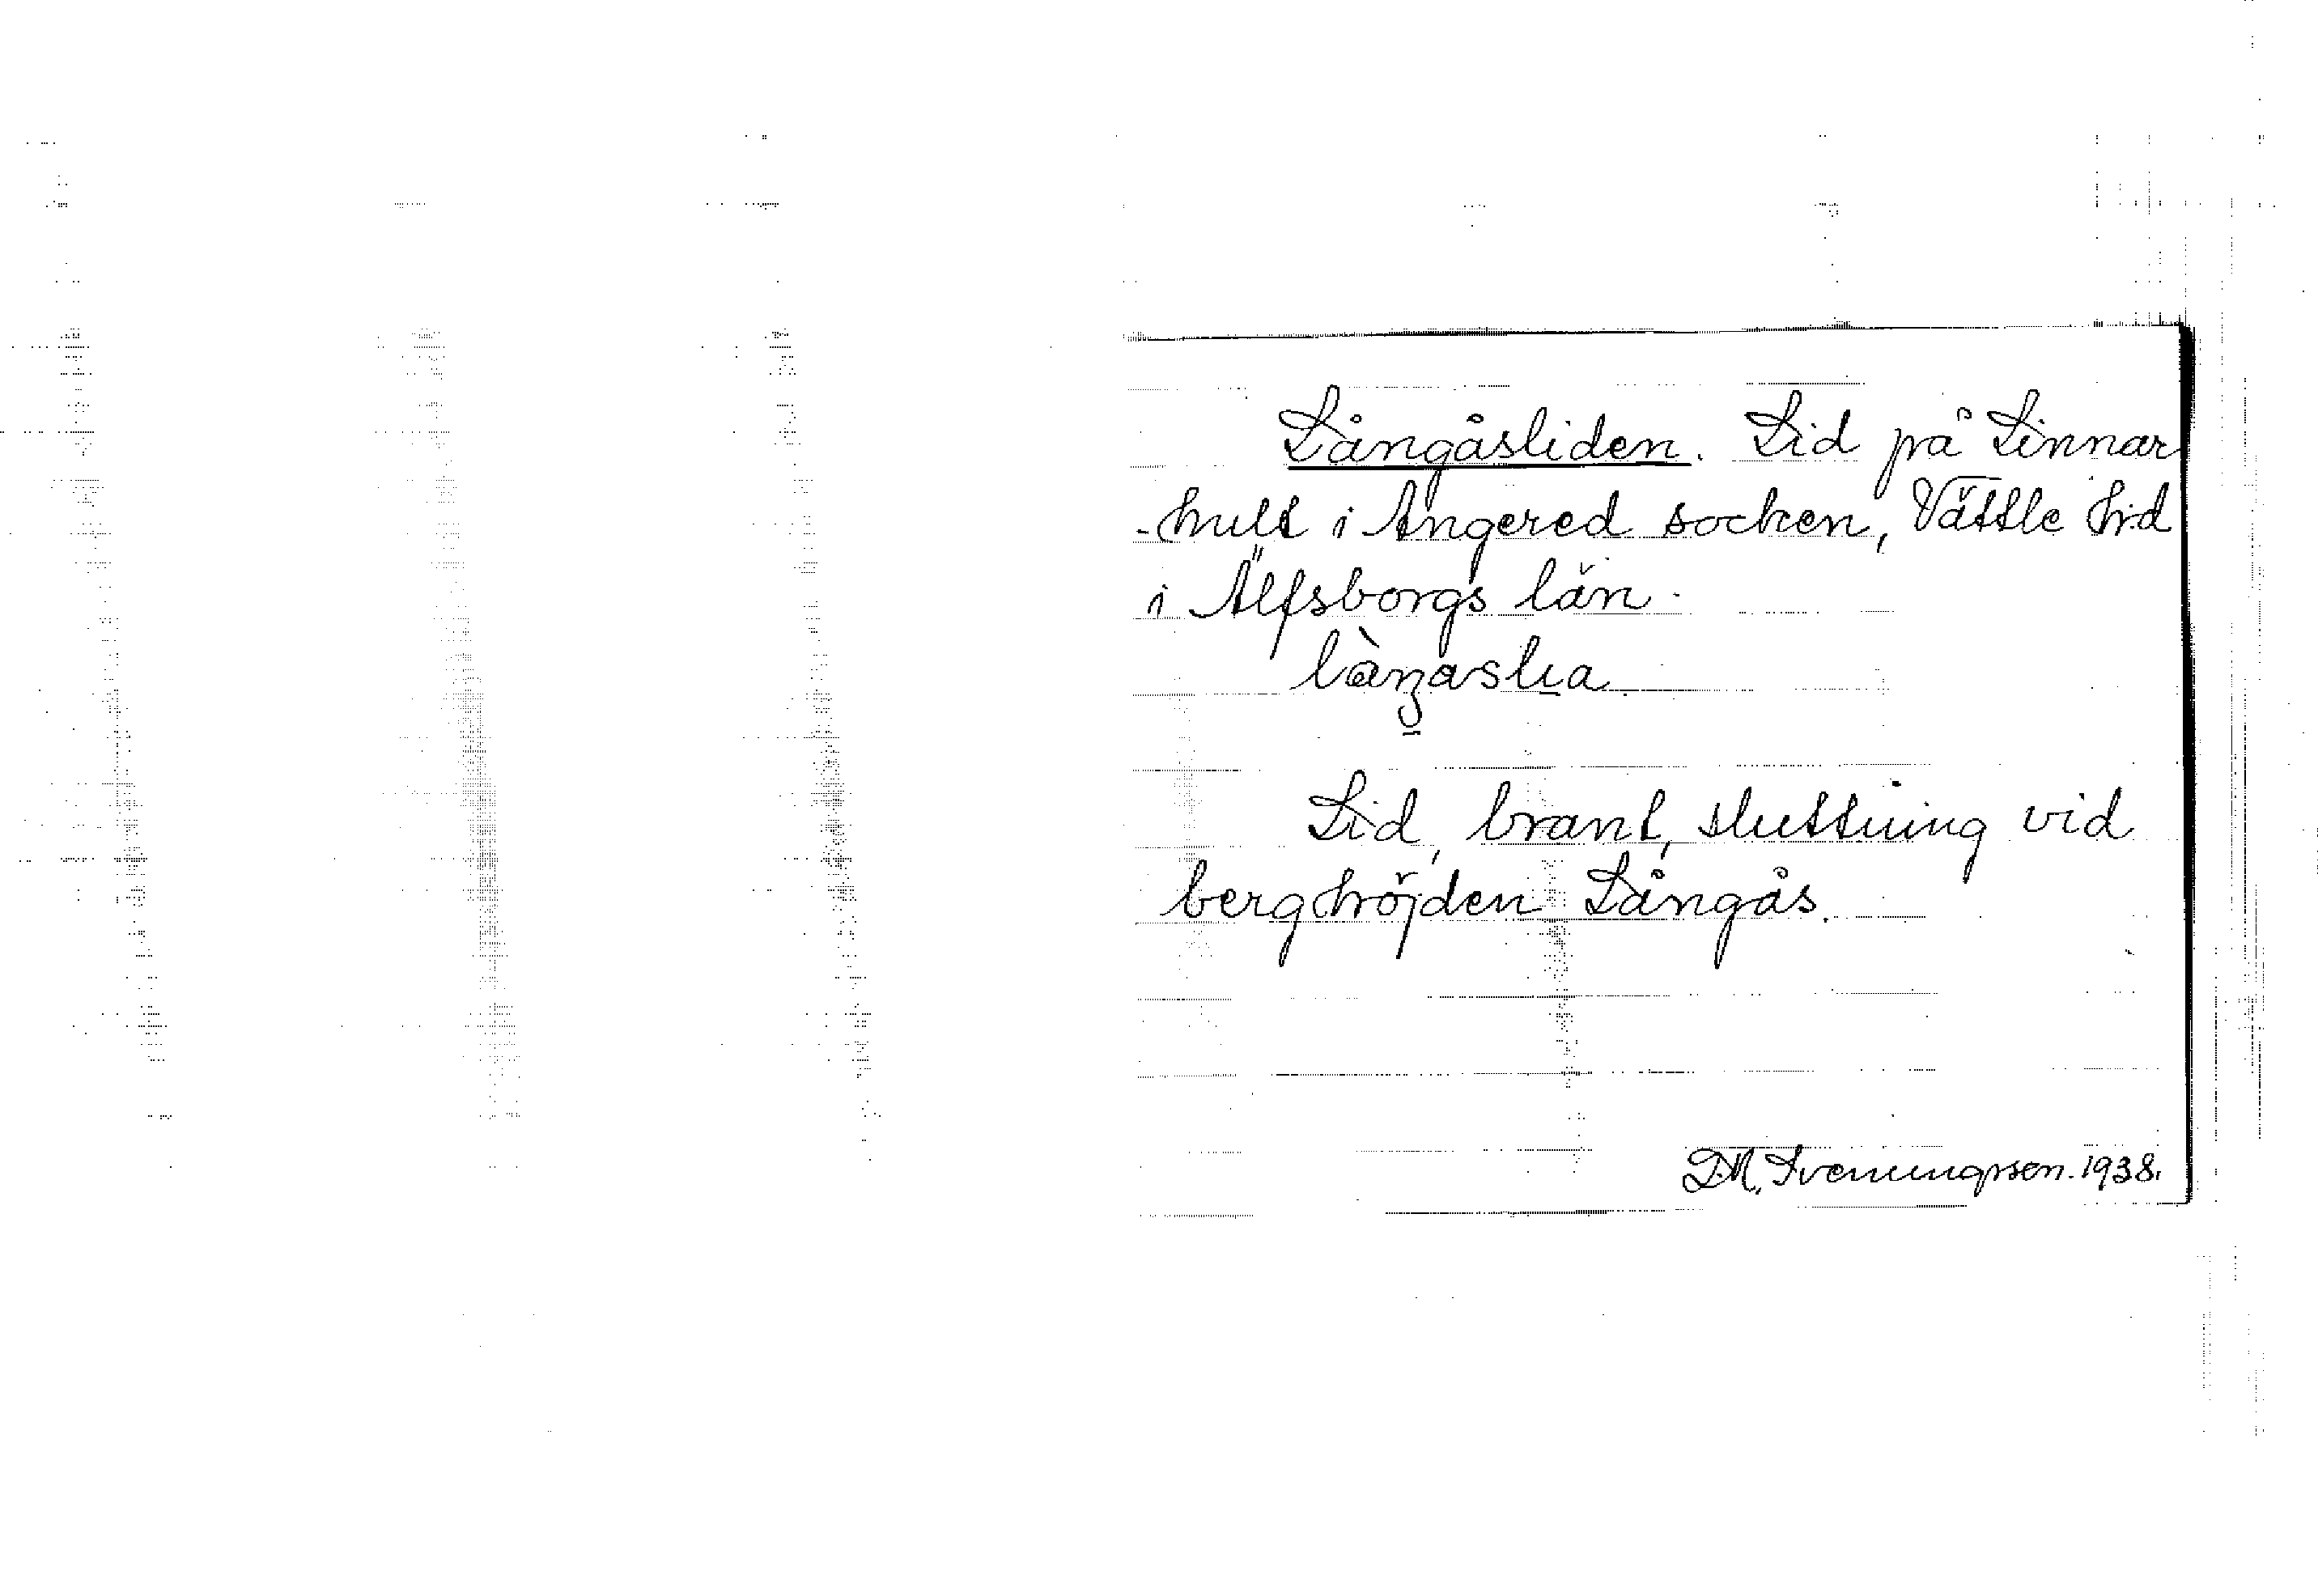 Långåsliden. Lid på Linnar
-hult i Angered socken, Vättle hd
i Älfsborgs län.
Lid, brant, sluttning vid
berghöjden Långås.
D.M. Sveningsson. 1938.